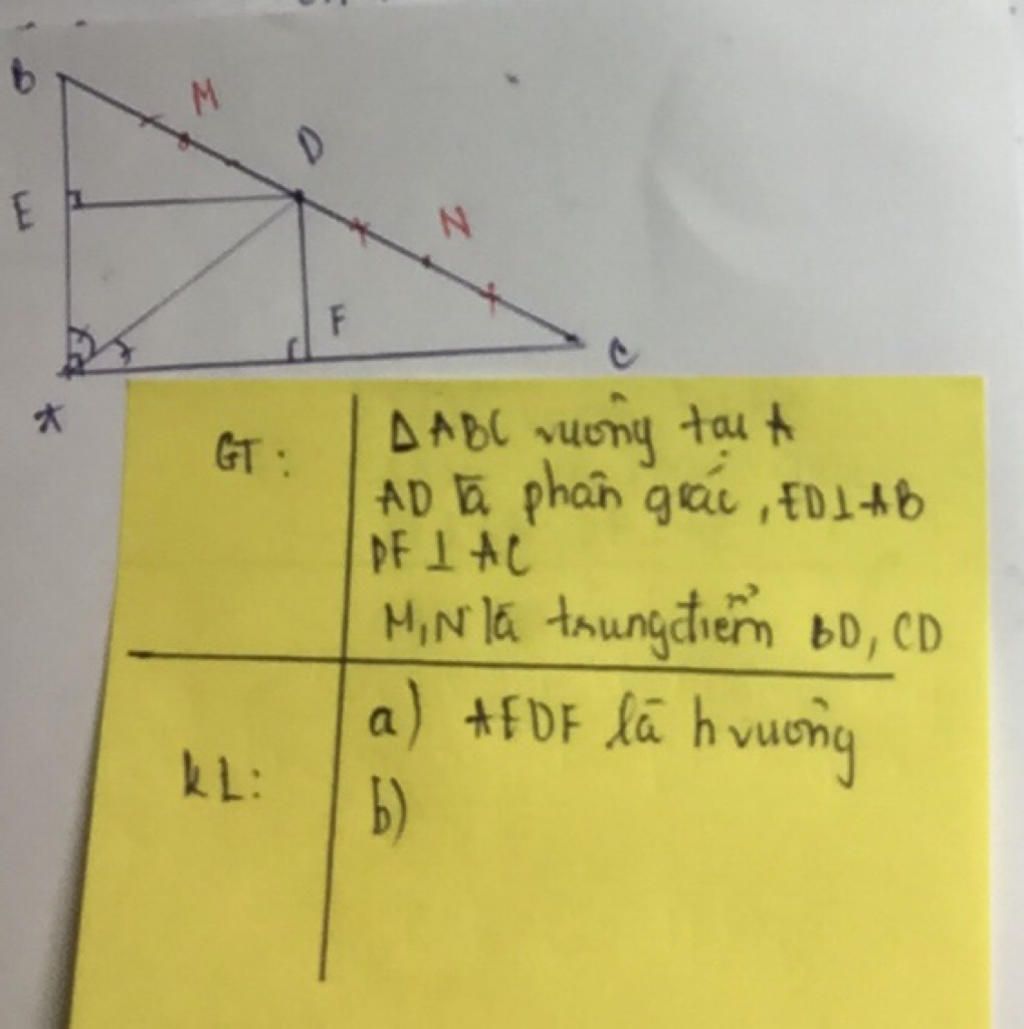 B
M
D
E
N
F
A
C
GT:
ΔABC vuông tại A
AD là phân giác, ED⊥AB
DF⊥AC
M,N là trung điểm BD, CD
KL:
a) AEDF là h vuông
b)